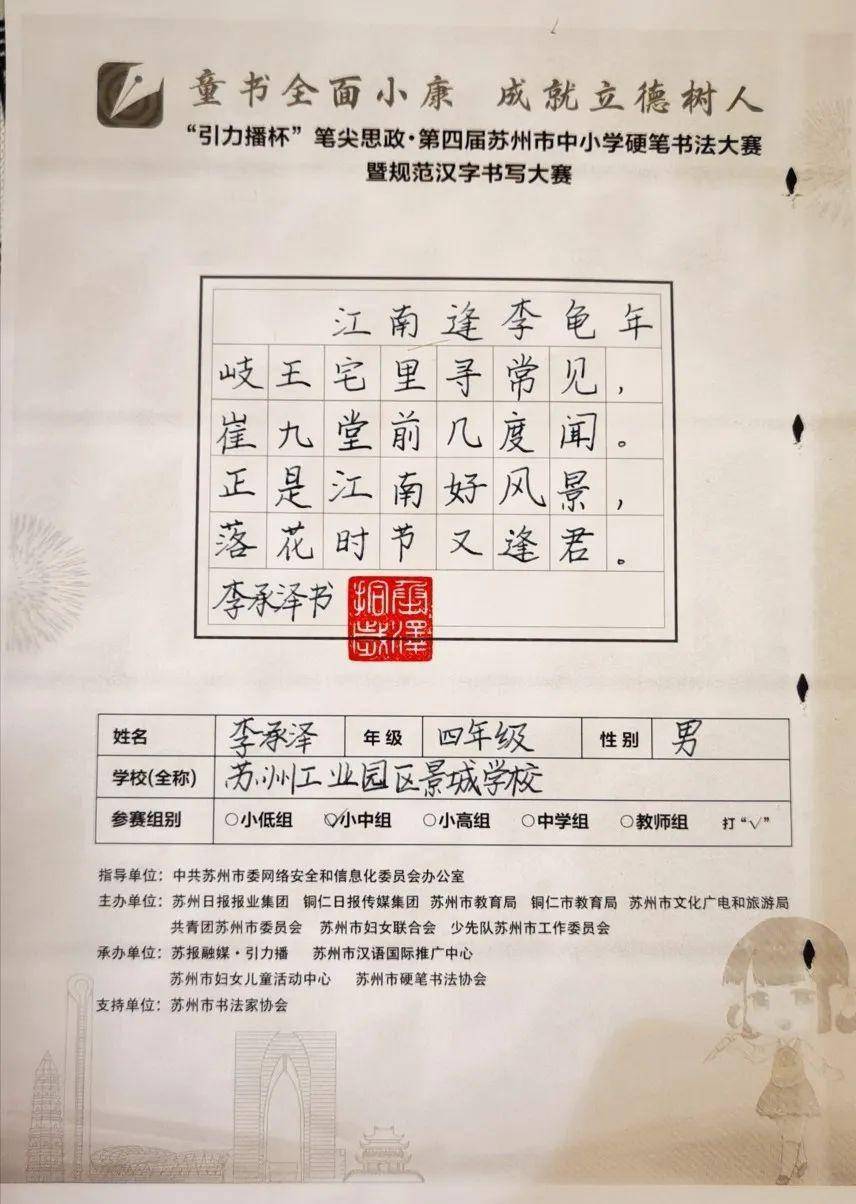 童书全面小康 成就立德树人
“引力播杯”笔尖思政·第四届苏州市中小学硬笔书法大赛
暨规范汉字书写大赛
江南逢李龟年
岐王宅里寻常见，
崔九堂前几度闻。
正是江南好风景，
落花时节又逢君。
李承泽书
姓名 李承泽 年级 四年级 性别 男
学校(全称) 苏州工业园区景城学校
参赛组别 ○小低组 ○小中组 ○小高组 ○中学组 ○教师组 打“√”
指导单位：中共苏州市委网络安全和信息化委员会办公室
主办单位：苏州日报报业集团 铜仁日报传媒集团 苏州市教育局 铜仁市教育局 苏州市文化广电和旅游局
共青团苏州市委员会 苏州市妇女联合会 少先队苏州市工作委员会
承办单位：苏报融媒·引力播 苏州市汉语国际推广中心
苏州市妇女儿童活动中心 苏州市硬笔书法协会
支持单位：苏州市书法家协会